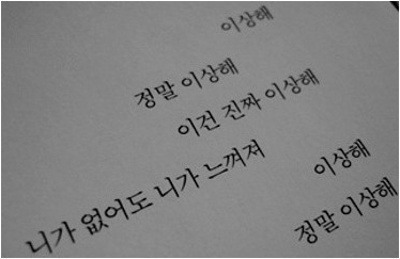 이상해
정말 이상해
이건 진짜 이상해
니가 없어도 니가 느껴져
이상해
정말 이상해